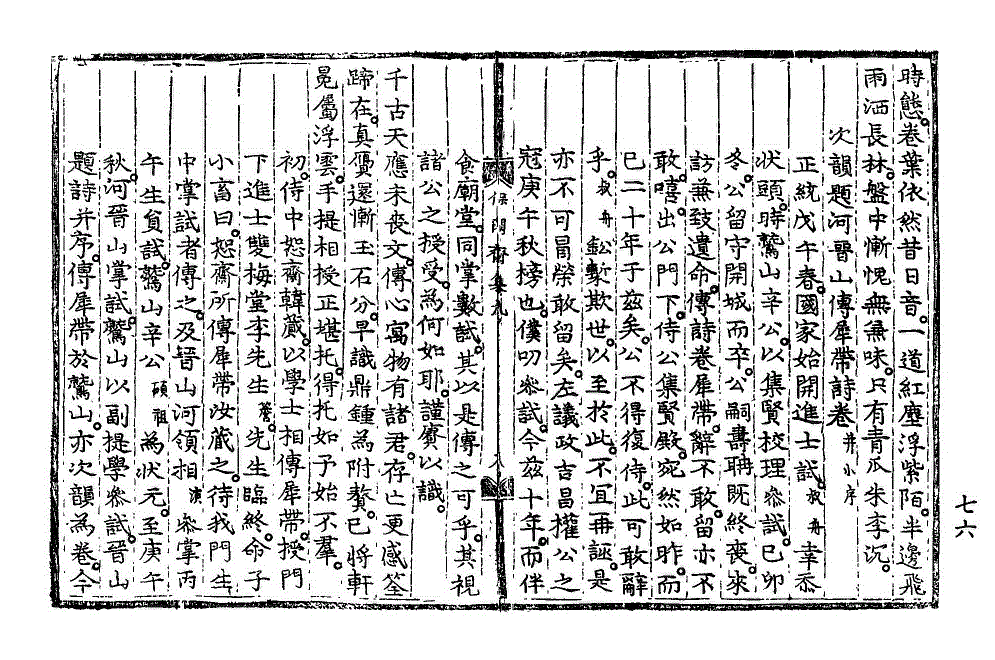 時態卷葉依然昔日音一道紅塵浮紫陌半邊飛
雨洒長林盤中慚愧無兼味只有青瓜朱李沉
次韻題河晉山傳犀帶詩卷并小序
正統戊午春國家始開進士試叔舟幸忝
狀頭時鷲山辛公以集賢校理叅試己卯
冬公留守開城而卒公嗣壽聃既終喪來
訪兼致遺命傳詩卷犀帶辭不敢留亦不
敢嘻出公門下侍公集賢殿宛然如昨而
已二十年于玆矣公不得復侍此可敢辭
乎叔舟欺世以至於此不宜再誣是
亦不可冒榮敢留矣左議政吉昌權公之
冠庚午秋榜也僕叨叅試今玆十年而伴
食廟堂同掌數試其以是傳之可乎其視
諸公之授受爲何如耶謹賡以識
千古天應未喪文傳心寓物有諸君存亡更感筌
蹄在真贗還慚玉石分早識鼎鍾爲附贅已將軒
冕屬浮雲手提相授正堪托得托如予始不羣
初侍中恕齋韓蕆以學士相傳犀帶授門
下進士雙梅堂李先生詹先生臨終命子
小畜曰恕齋所傳犀帶汝蕆之待我門生
中掌試者傳之及晉山河領相演叅掌丙
午生員試鷲山辛公碩祖爲狀元至庚午
秋河晉山掌試鷲山以副提學叅試晉山
題詩并序傳犀帶於鷲山亦次韻爲卷今
保閑齋集九
八
七六